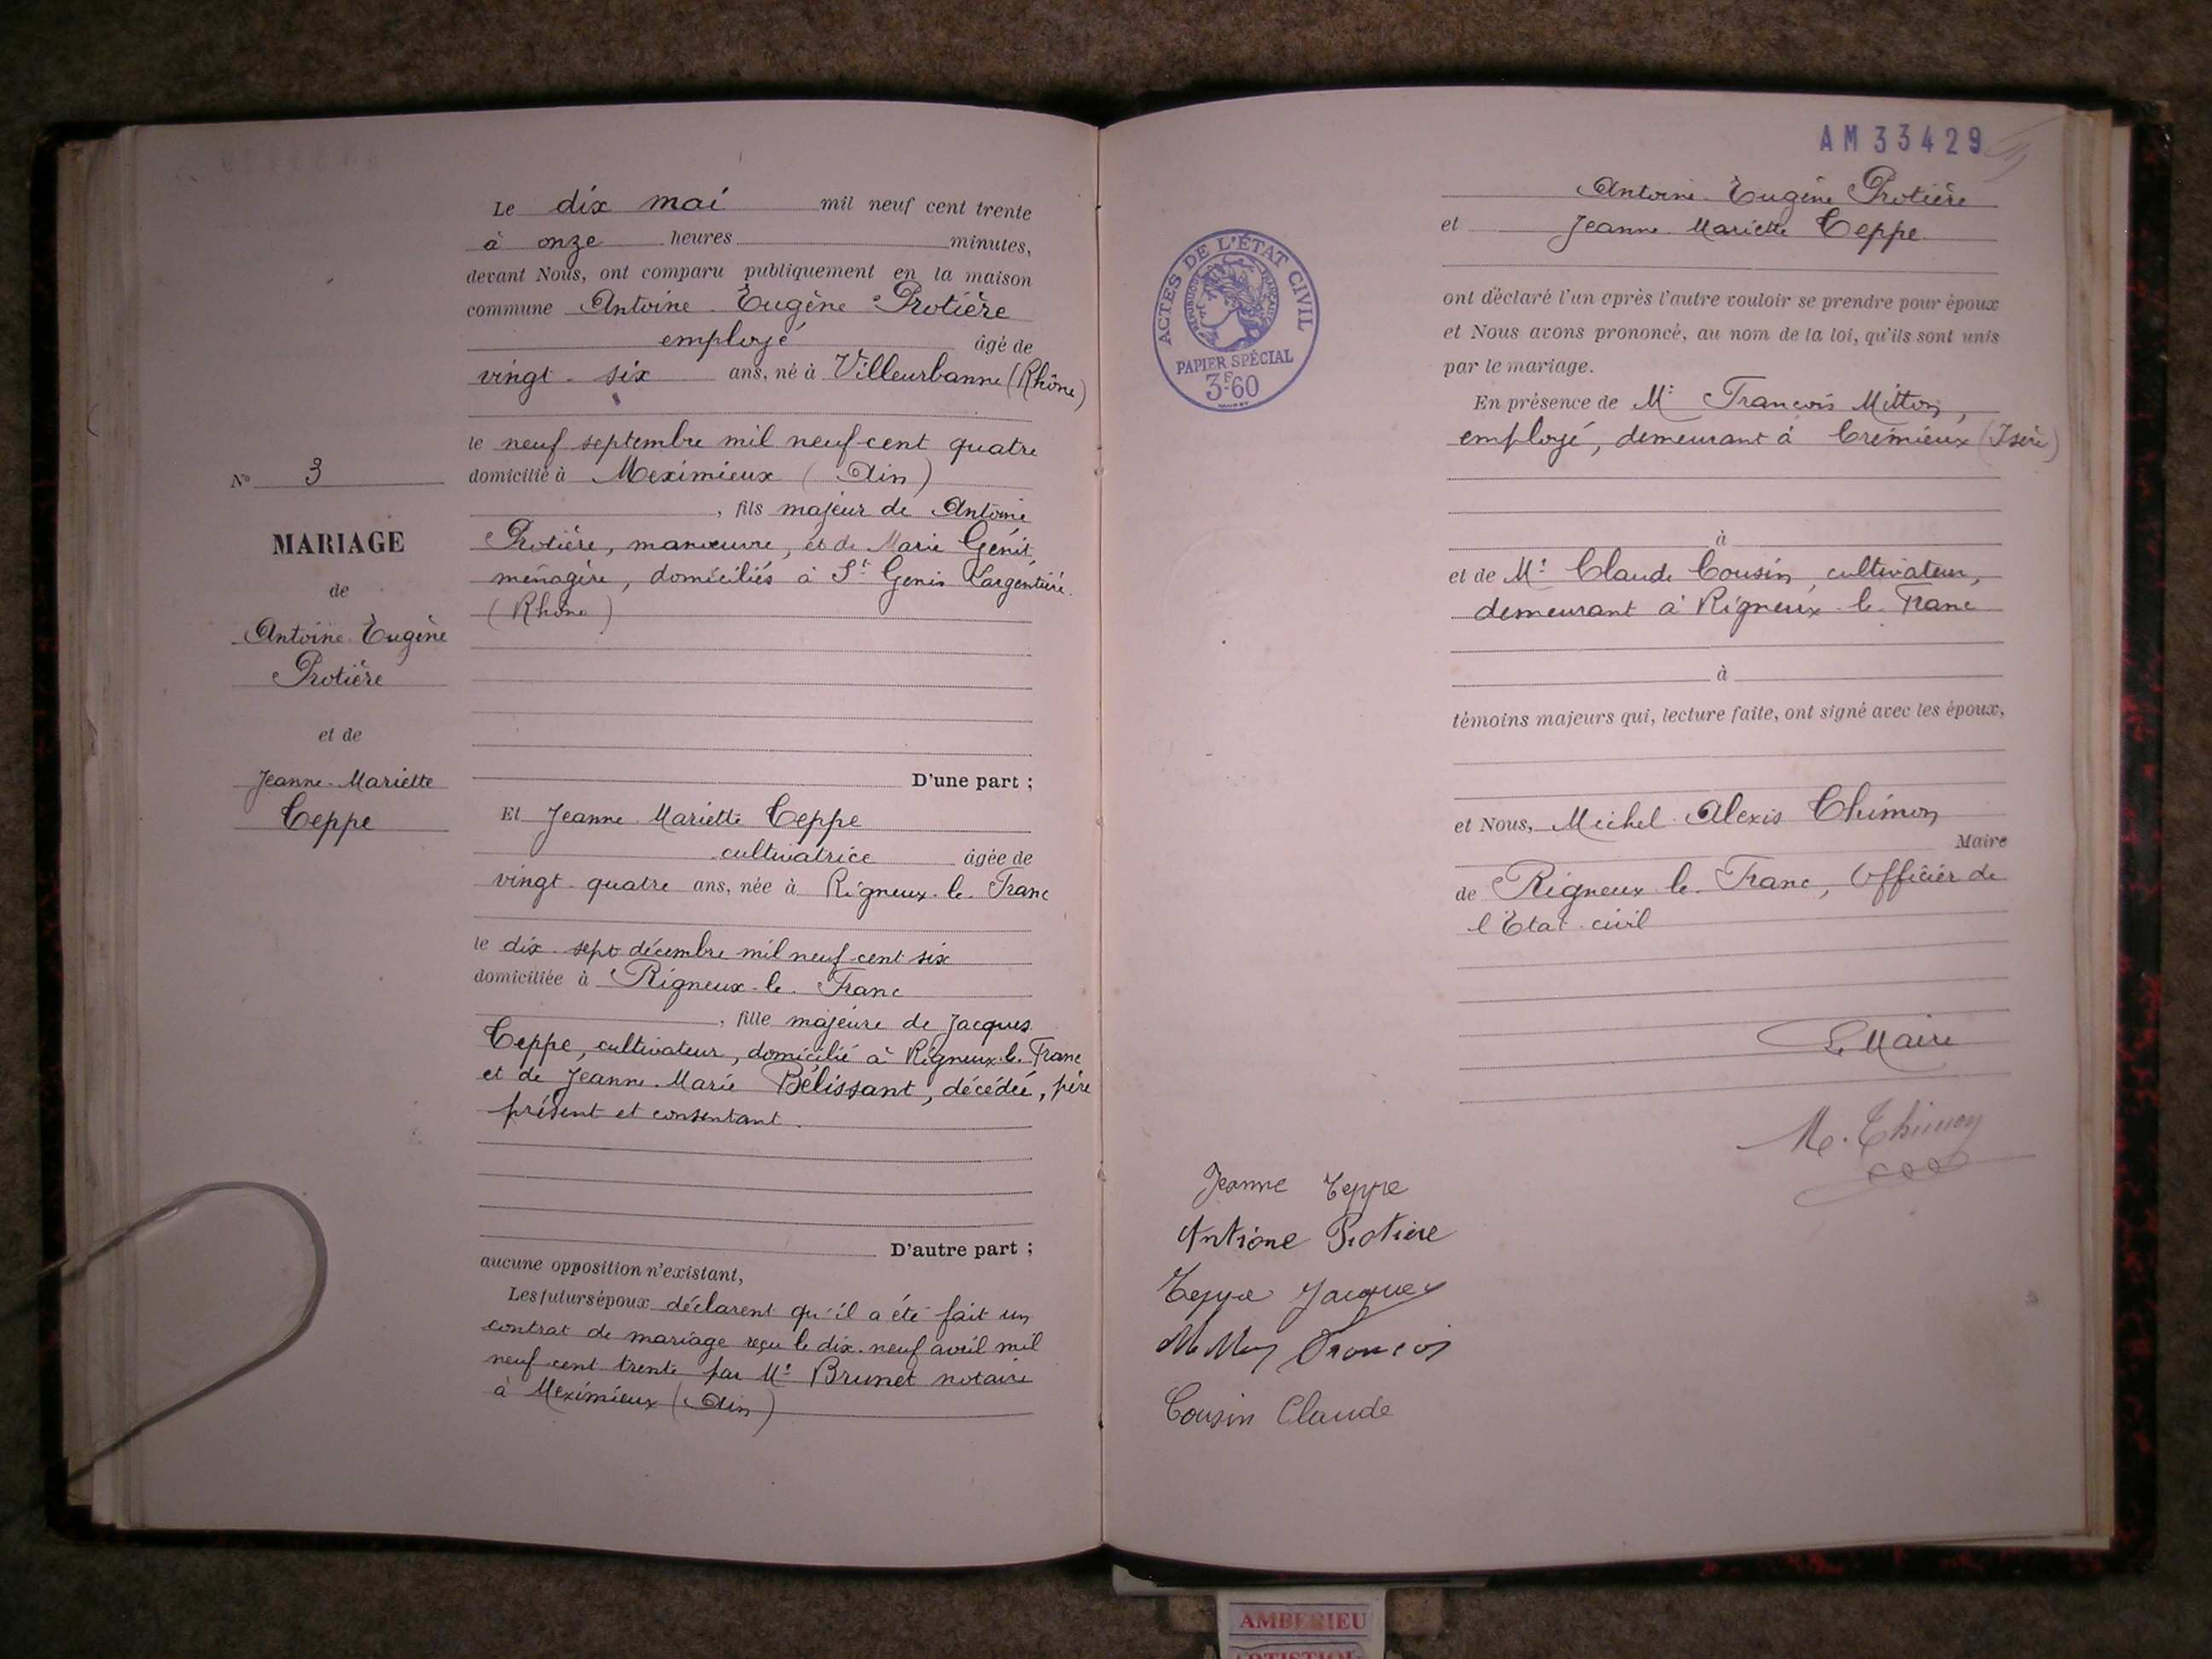 Le dix mai mil neuf cent trente
à onze heures minutes,
devant Nous, ont comparu publiquement en la maison
commune Antoine Eugène Protière
employé âgé de
vingt-six ans, né à Villeurbanne (Rhône)
le neuf septembre mil neuf cent quatre
domicilié à Meximieux (Ain)
, fils majeur de Antoine
Protière, manœuvre, et de Marie Génit
ménagère, domiciliés à St Genis Largentière
(Rhône)
D'une part ;
Et Jeanne Mariette Teppe
cultivatrice âgée de
vingt-quatre ans, née à Rigneux-le-Franc
le dix-sept décembre mil neuf cent six
domiciliée à Rigneux-le-Franc
, fille majeure de Jacques
Teppe, cultivateur, domicilié à Rigneux-le-Franc
et de Jeanne-Marie Bélissant, décédée, père
présent et consentant.
D'autre part ;
aucune opposition n'existant,
Les futurs époux déclarent qu'il a été fait un
contrat de mariage reçu le dix-neuf avril mil
neuf cent trente par Me Brunet notaire
à Meximieux (Ain)
No 3
MARIAGE
de
Antoine Eugène
Protière
et de
Jeanne-Mariette
Teppe
AM 33429
ACTES DE L'ÉTAT CIVIL
RÉPUBLIQUE FRANÇAISE
PAPIER SPÉCIAL
3F60
Antoine-Eugène Protière
et Jeanne Mariette Teppe
ont déclaré l'un après l'autre vouloir se prendre pour époux
et Nous avons prononcé, au nom de la loi, qu'ils sont unis
par le mariage.
En présence de Mr François Mitton,
employé, demeurant à Crémieux (Isère)
à
et de Mr Claude Cousin, cultivateur,
demeurant à Rigneux-le-Franc
à
témoins majeurs qui, lecture faite, ont signé avec les époux,
et Nous, Michel Alexis Thimon
Maire
de Rigneux-le-Franc, Officier de
l'Etat-civil
Le Maire
M. Thimon
Jeanne Teppe
Antione Protière
Teppe Jacques
François
Cousin Claude
AMBERIEU